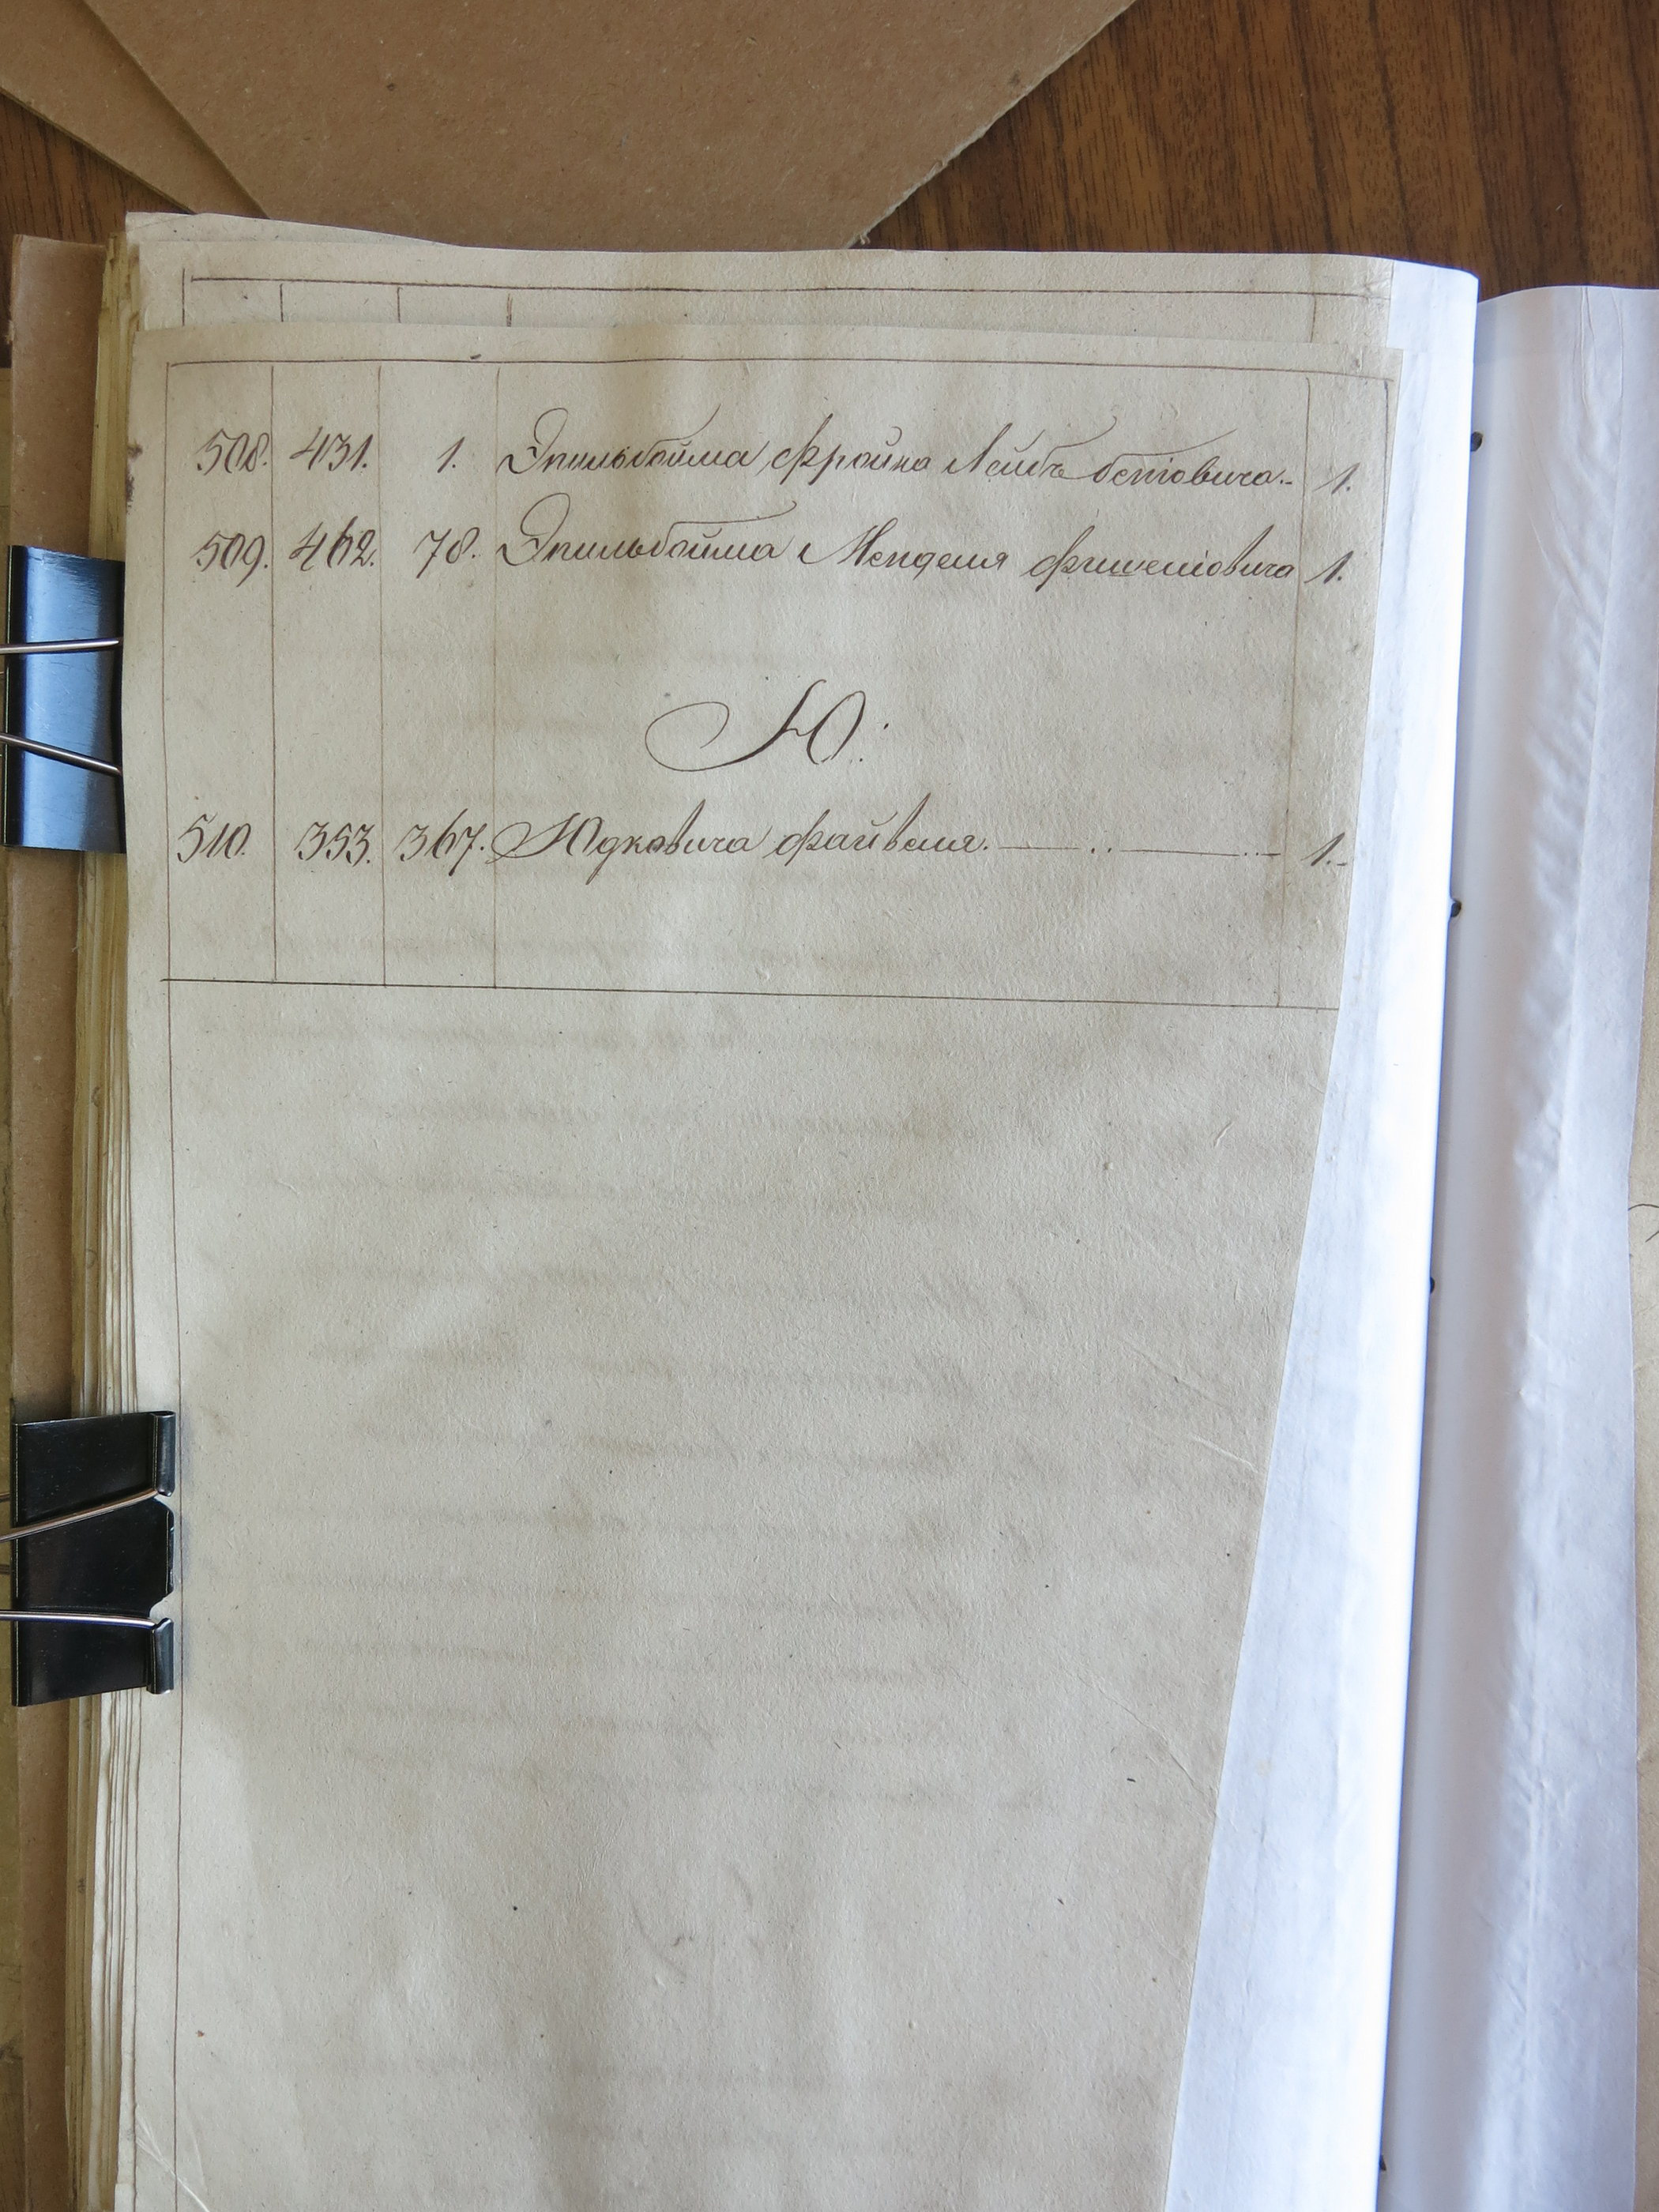 508. 431. 1. Эпильбойма Фроима Лейбъ 1.
509. 462. 78. Эпильбойма Менделя Фишелiовича 1.
Ю.
510. 353. 367. Юдковича Файвеля. 1.